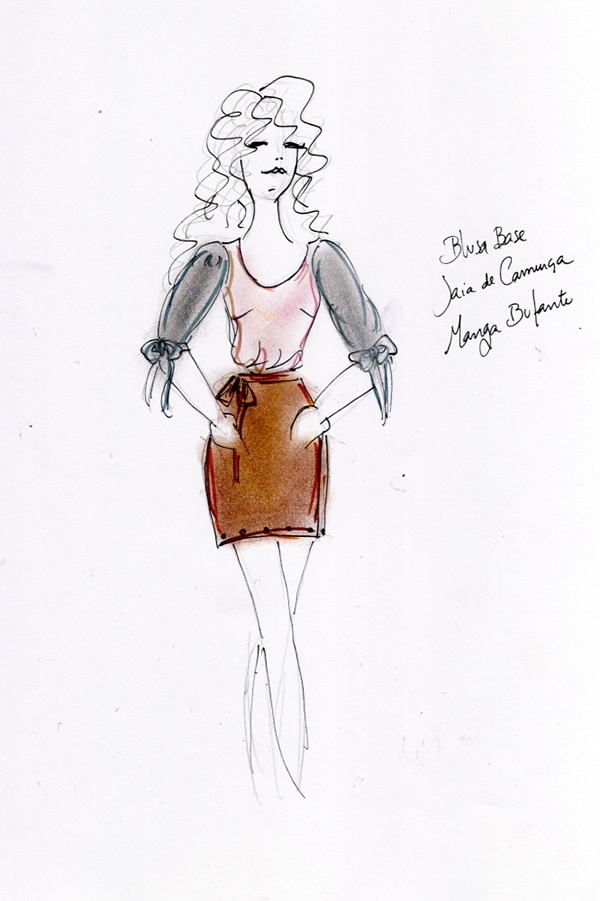 Blusa Base
Saia de Camurça
Manga Bufante